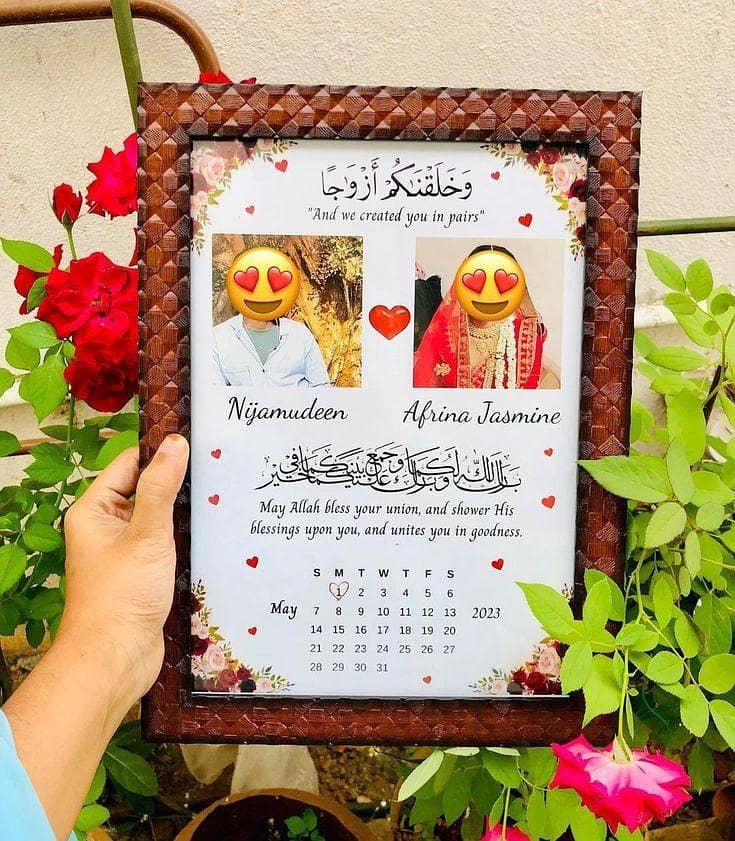 وَخَلَقْنَٰكُمْ أَزْوَٰجًا
"And we created you in pairs"
Nijamudeen Afrina Jasmine
بارك الله لكما وبارك عليكما وجمع بينكما في خير
May Allah bless your union, and shower His
blessings upon you, and unites you in goodness.
S M T W T F S
1 2 3 4 5 6
May 7 8 9 10 11 12 13 2023
14 15 16 17 18 19 20
21 22 23 24 25 26 27
28 29 30 31